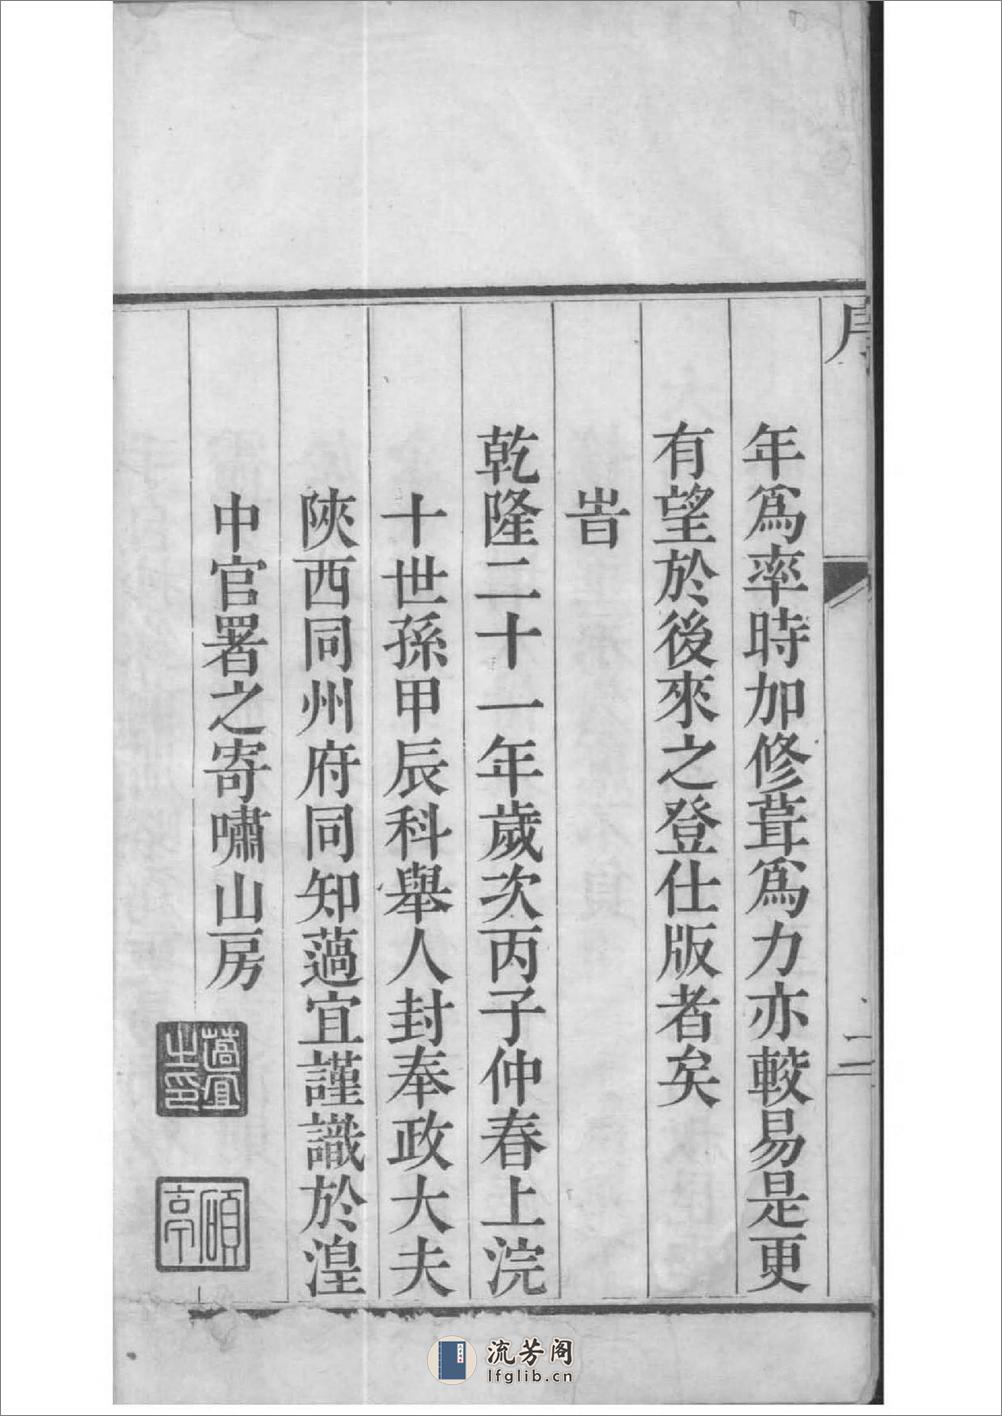 序
二
年爲率時加修葺爲力亦較易是更
有望於後來之登仕版者矣
旹
乾隆二十一年歲次丙子仲春上浣
十世孫甲辰科舉人封奉政大夫
陝西同州府同知薖宜謹識於湟
中官署之寄嘯山房
薖宜之印
碩亭
流芳阁
lfglib.cn